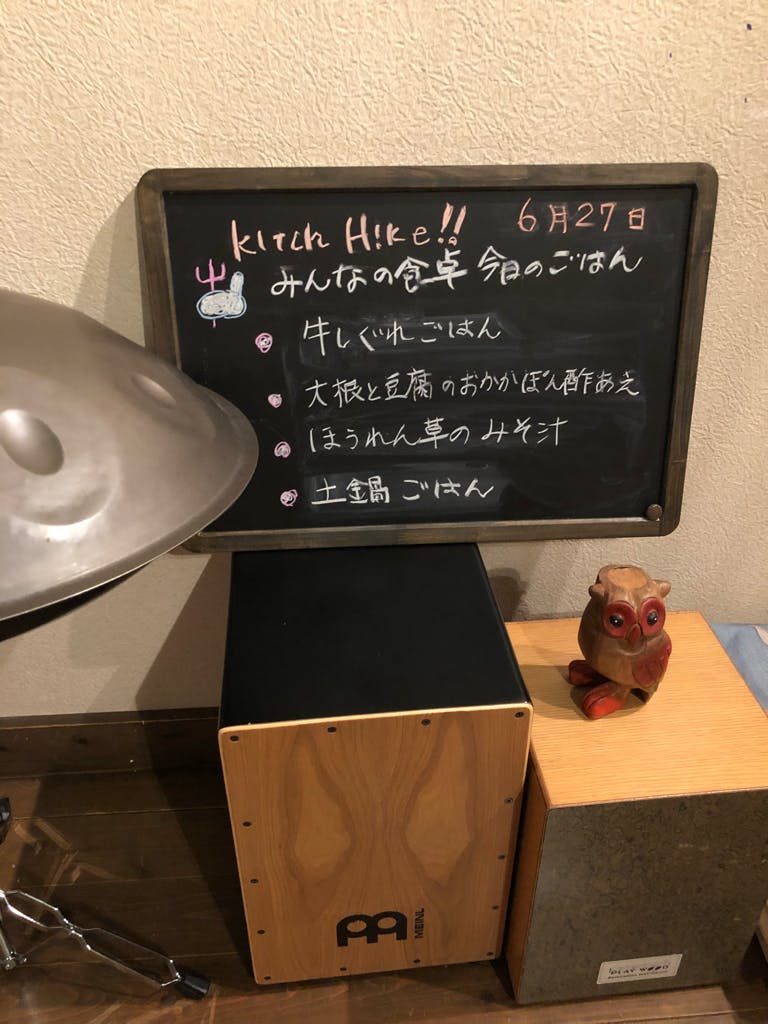 Kitch Hike!! 6月27日
みんなの食卓 今日のごはん
牛しぐれごはん
大根と豆腐のおかかぽん酢あえ
ほうれん草のみそ汁
土鍋ごはん
MEINL
PLAY WOOD